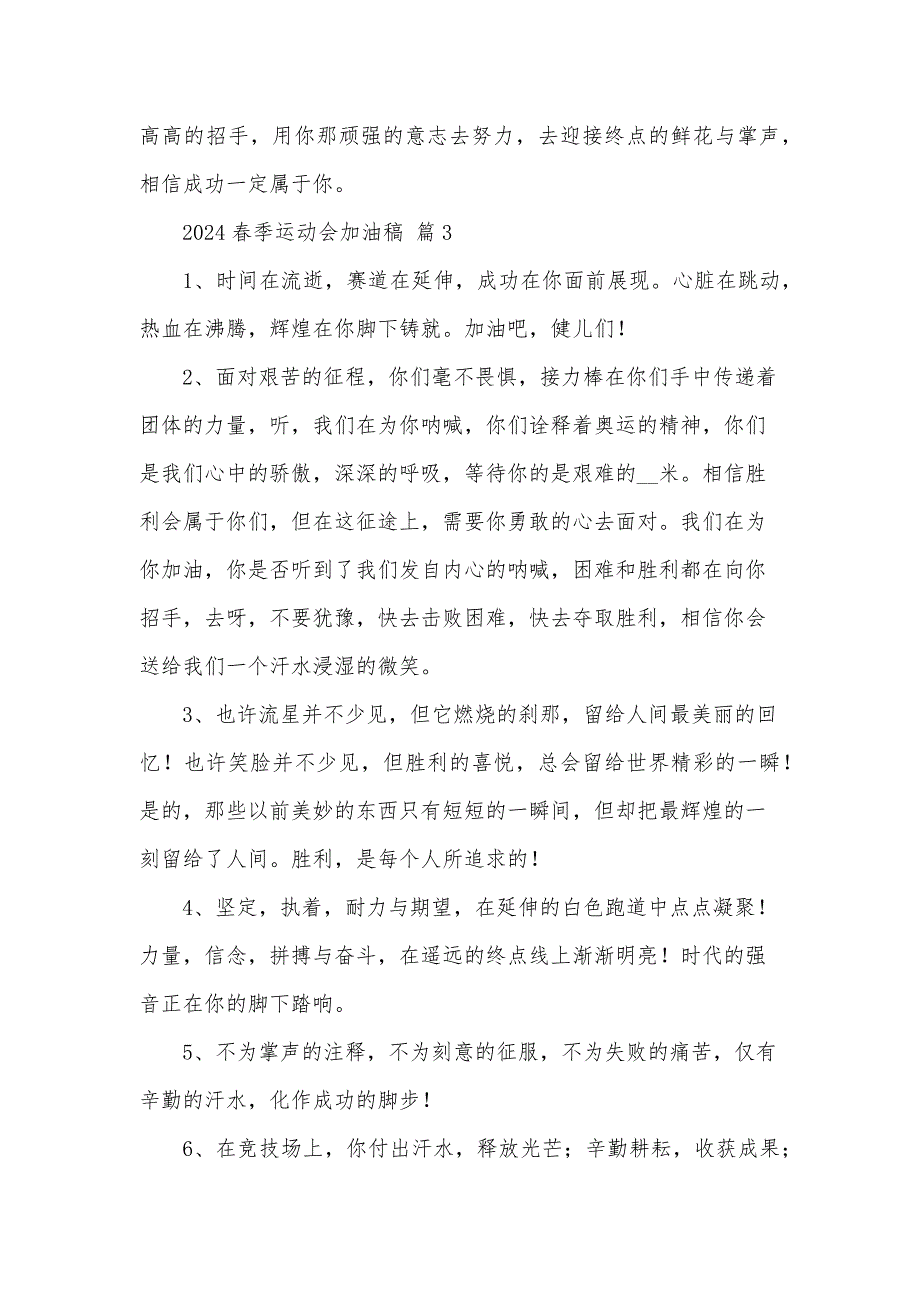 高高的招手，用你那顽强的意志去努力，去迎接终点的鲜花与掌声，
相信成功一定属于你。
2024 春季运动会加油稿 篇 3
1、时间在流逝，赛道在延伸，成功在你面前展现。心脏在跳动，
热血在沸腾，辉煌在你脚下铸就。加油吧，健儿们！
2、面对艰苦的征程，你们毫不畏惧，接力棒在你们手中传递着
团体的力量，听，我们在为你呐喊，你们诠释着奥运的精神，你们
是我们心中的骄傲，深深的呼吸，等待你的是艰难的__米。相信胜
利会属于你们，但在这征途上，需要你勇敢的心去面对。我们在为
你加油，你是否听到了我们发自内心的呐喊，困难和胜利都在向你
招手，去呀，不要犹豫，快去击败困难，快去夺取胜利，相信你会
送给我们一个汗水浸湿的微笑。
3、也许流星并不少见，但它燃烧的刹那，留给人间最美丽的回
忆！也许笑脸并不少见，但胜利的喜悦，总会留给世界精彩的一瞬！
是的，那些以前美妙的东西只有短短的一瞬间，但却把最辉煌的一
刻留给了人间。胜利，是每个人所追求的！
4、坚定，执着，耐力与期望，在延伸的白色跑道中点点凝聚！
力量，信念，拼搏与奋斗，在遥远的终点线上渐渐明亮！时代的强
音正在你的脚下踏响。
5、不为掌声的注释，不为刻意的征服，不为失败的痛苦，仅有
辛勤的汗水，化作成功的脚步！
6、在竞技场上，你付出汗水，释放光芒；辛勤耕耘，收获成果；